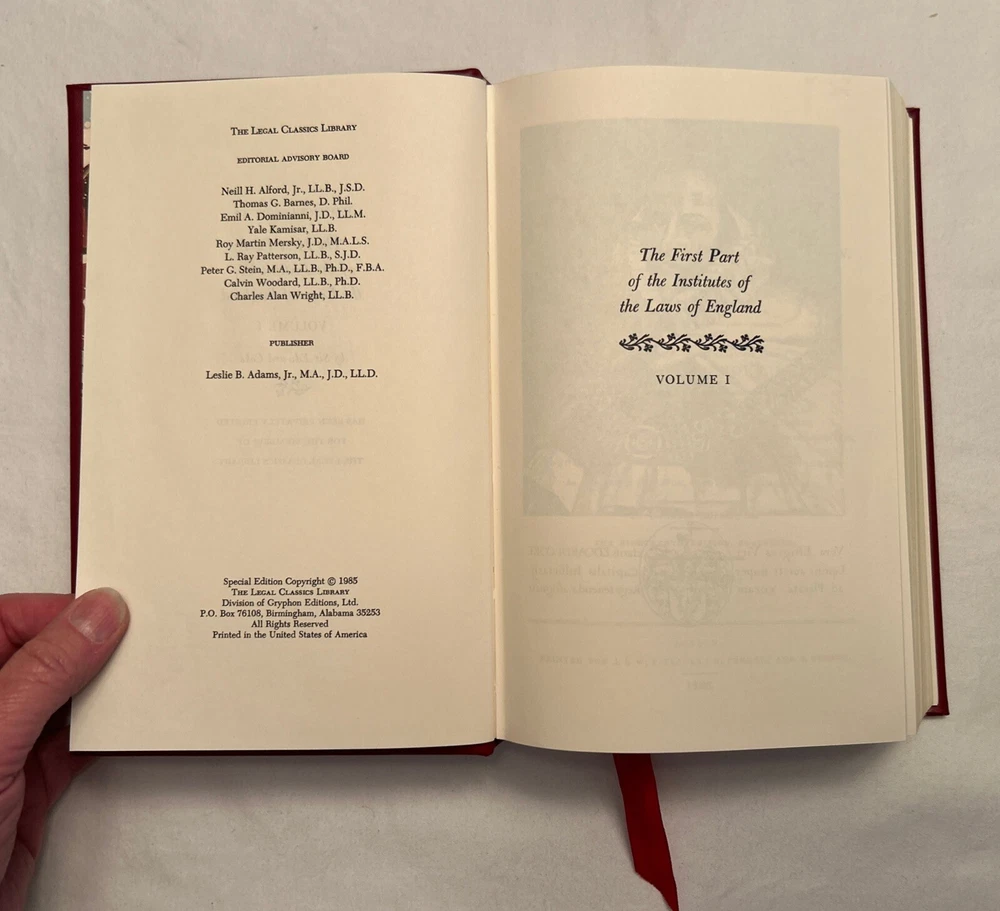 THE LEGAL CLASSICS LIBRARY
EDITORIAL ADVISORY BOARD
Neill H. Alford, Jr., LL.B., J.S.D.
Thomas G. Barnes, D. Phil.
Emil A. Dominianni, J.D., LL.M.
Yale Kamisar, LL.B.
Roy Martin Mersky, J.D., M.A.L.S.
L. Ray Patterson, LL.B., S.J.D.
Peter G. Stein, M.A., LL.B., Ph.D., F.B.A.
Calvin Woodard, LL.B., Ph.D.
Charles Alan Wright, LL.B.
PUBLISHER
Leslie B. Adams, Jr., M.A., J.D., LL.D.
Special Edition Copyright © 1985
THE LEGAL CLASSICS LIBRARY
Division of Gryphon Editions, Ltd.
P.O. Box 76108, Birmingham, Alabama 35253
All Rights Reserved
Printed in the United States of America
The First Part
of the Institutes of
the Laws of England
VOLUME I